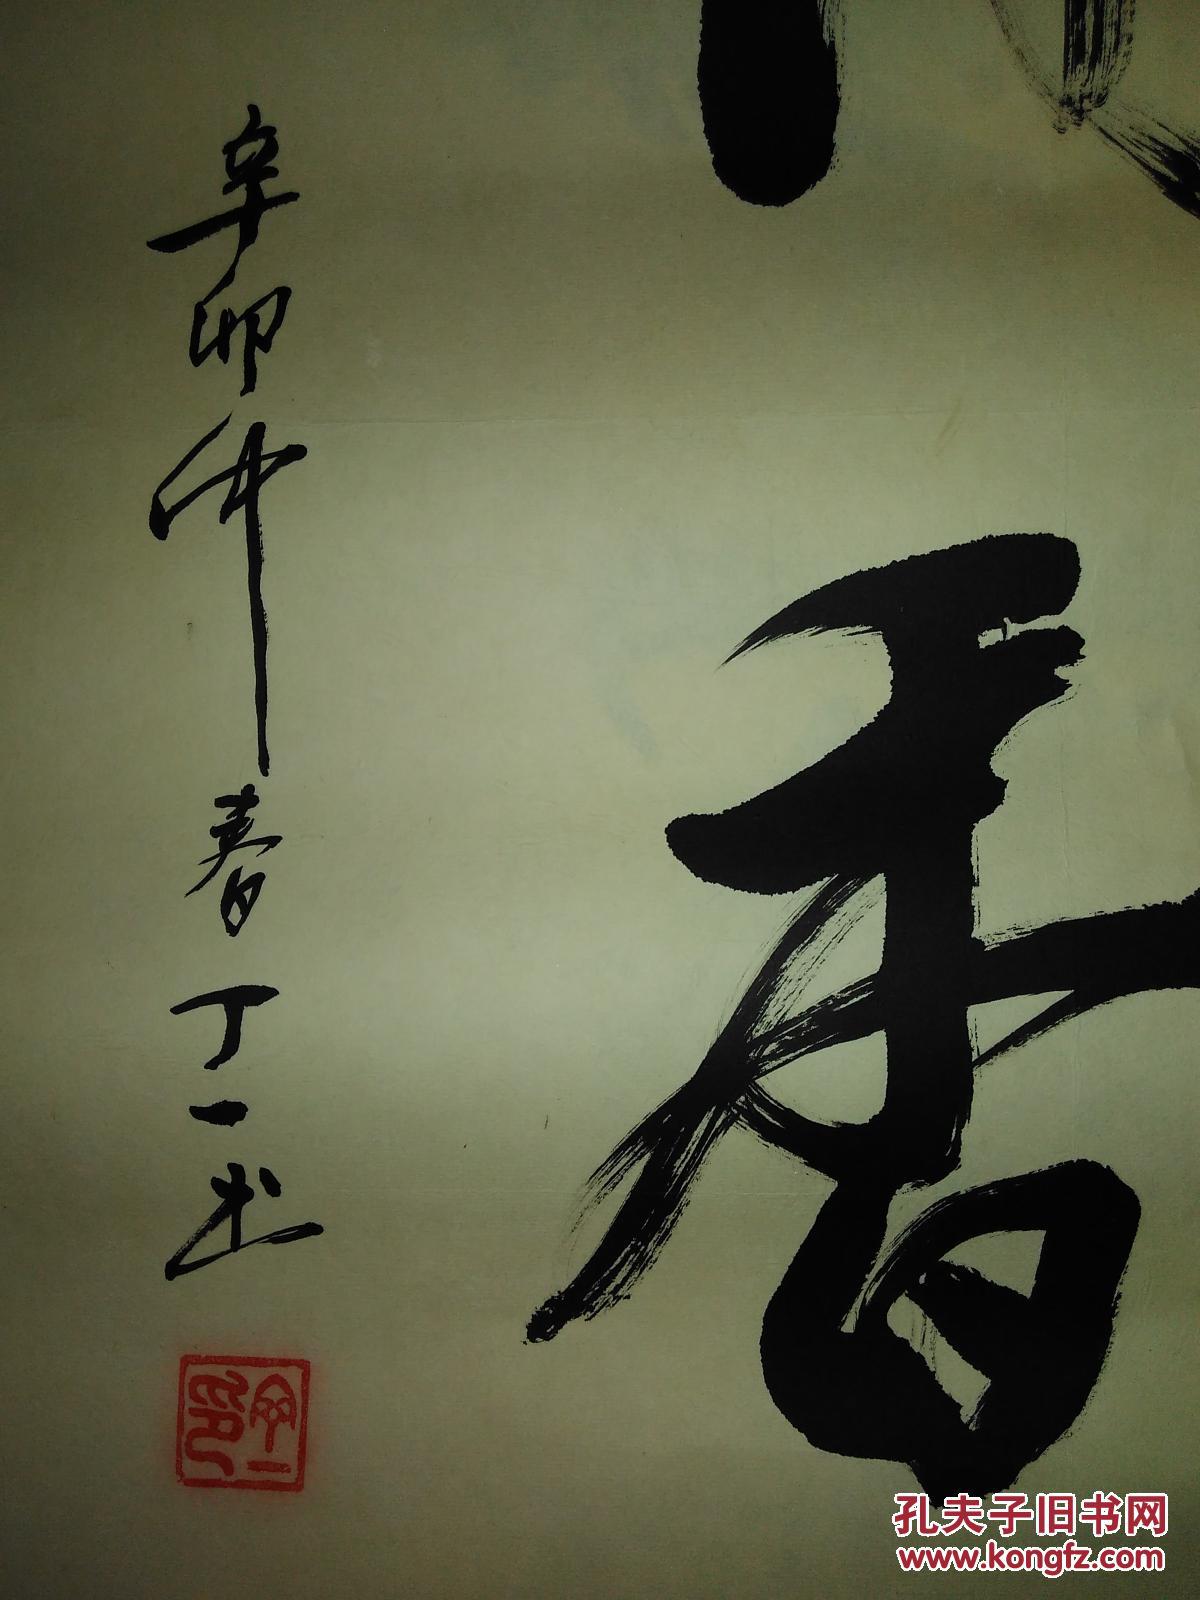 香
辛卯仲春丁一书
孔夫子旧书网
www.kongfz.com